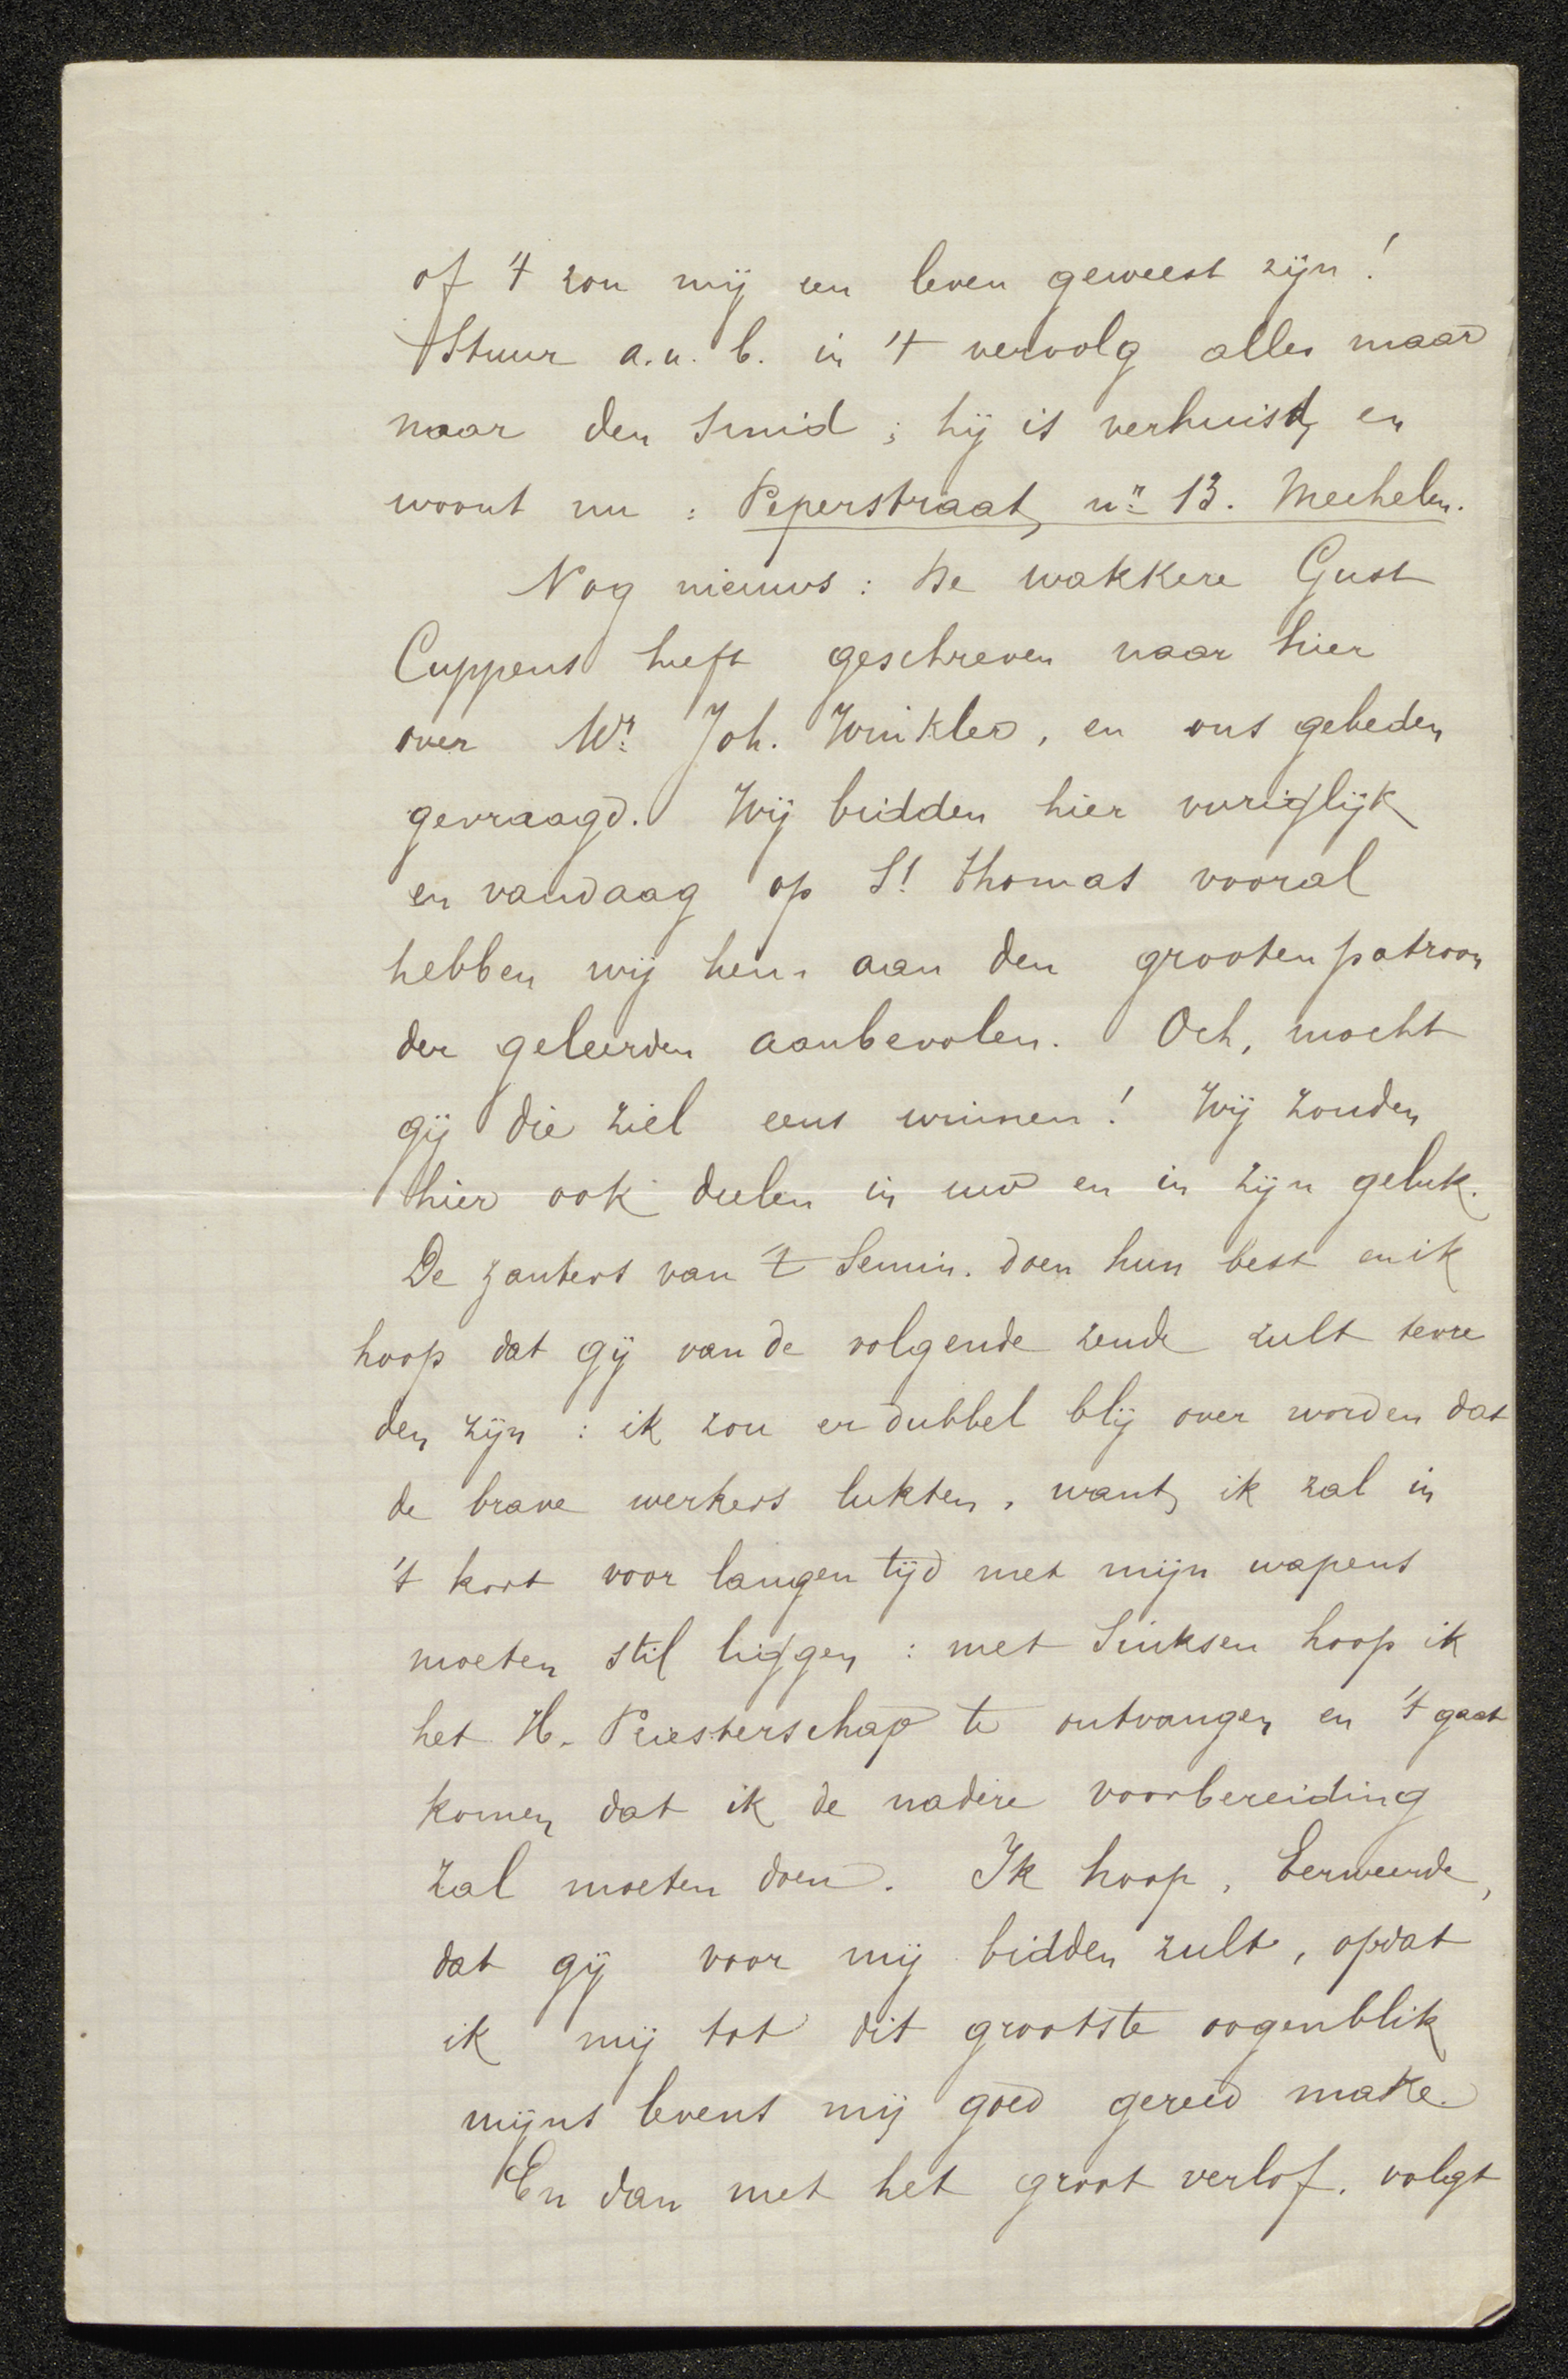 of 't zou mij een leven geweest zijn!
Stuur a.u.b. in 't vervolg alles maar
naar den Smid; hij is verhuisd, en
woont nu: Peperstraat, nr 13. Mechelen.
Nog nieuws: De wakkere Gust
Cuppens heeft geschreven naar hier
over Mr Joh. Winkler, en ons gebeden
gevraagd. Wij bidden hier vuriglijk
en vandaag op St Thomas vooral
hebben wij hem aan den grooten patroon
der geleerden aanbevolen. Och, mocht
gij die ziel eens winnen! Wij zouden
hier ook deelen in uw en in zijn geluk.
De zanters van 't Semin. doen hun best en ik
hoop dat gij van de volgende zende zult tevre
den zijn: ik zou er dubbel blij over worden dat
de brave werkers lukten, want, ik zal in
't kort voor langen tijd met mijn wapens
moeten stil liggen: met Sinksen hoop ik
het H. Priesterschap te ontvangen en 't gaat
komen dat ik de nadere voorbereiding
zal moeten doen. Ik hoop, Eerweerde,
dat gij voor mij bidden zult, opdat
ik mij tot dit grootste oogenblik
mijns levens mij goed gereed make.
En dan met het groot verlof, volgt